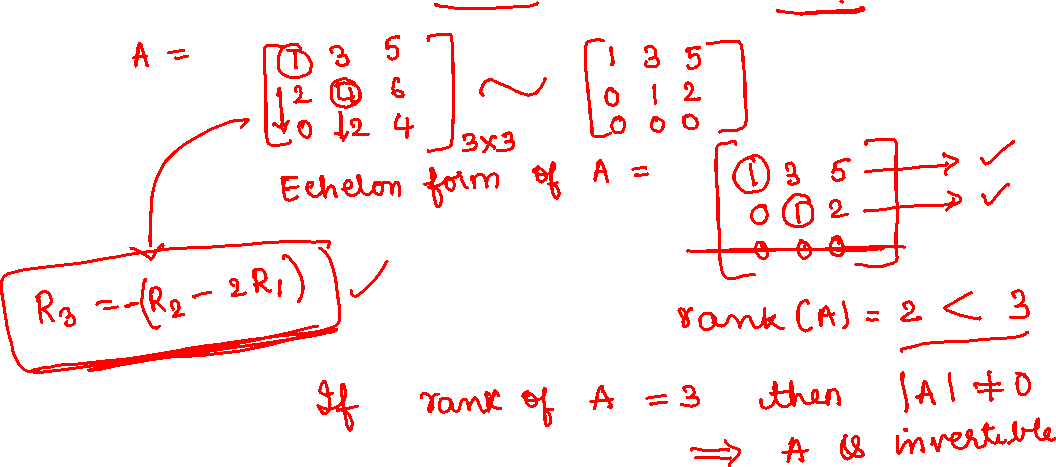 A = [ 1 3 5 ] ~ [ 1 3 5 ]
[ 2 4 6 ] [ 0 1 2 ]
[ 0 2 4 ] 3×3 [ 0 0 0 ]
Echelon form of A = [ 1 3 5 ] → ✓
[ 0 1 2 ] → ✓
[ 0 0 0 ]
R₃ = -(R₂ - 2R₁) ✓
rank (A) = 2 < 3
If rank of A = 3 then |A| ≠ 0
⇒ A is invertible